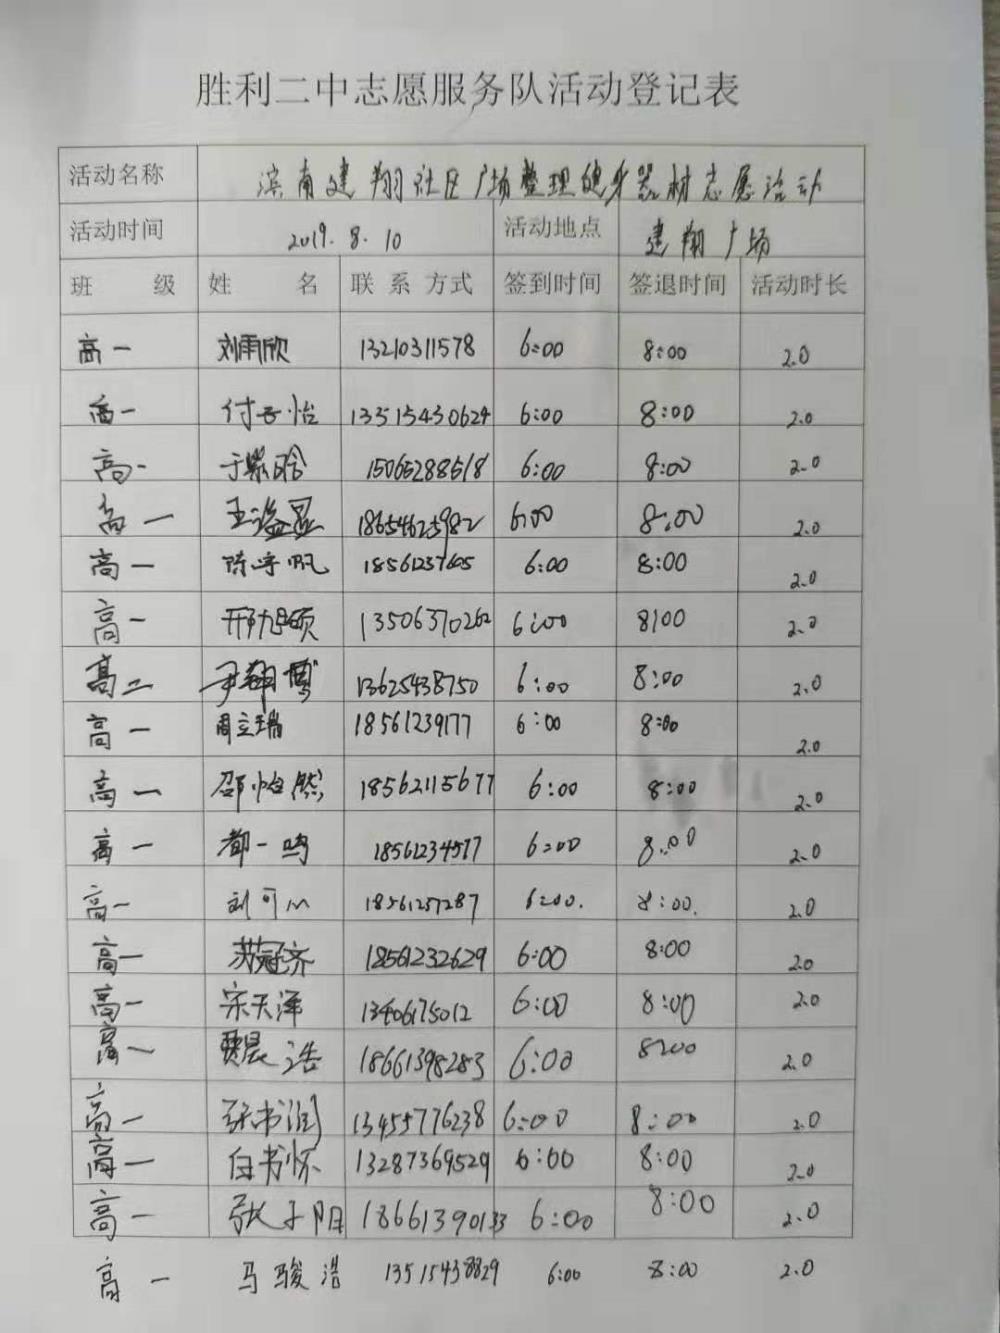 胜利二中志愿服务队活动登记表
活动名称 滨南建翔社区广场整理健身器材志愿活动
活动时间 2019.8.10 活动地点 建翔广场
班 级 姓 名 联系方式 签到时间 签退时间 活动时长
高一 刘雨欣 13210311578 6:00 8:00 2.0
高一 付子怡 13515430624 6:00 8:00 2.0
高一 于紫晗 15065288518 6:00 8:00 2.0
高一 18654625982 6:00 8:00 2.0
高一 18561237605 6:00 8:00 2.0
高一 13506370262 6:00 8:00 2.0
高二 尹翔博 13625438750 6:00 8:00 2.0
高一 周立瑞 18561239177 6:00 8:00 2.0
高一 邵怡然 18562115677 6:00 8:00 2.0
高一 都一鸣 18561234577 6:00 8:00 2.0
高一 刘可心 18561257287 6:00. 8:00. 2.0
高一 苏冠齐 18561232629 6:00 8:00 2.0
高一 宋天泽 13406175012 6:00 8:00 2.0
高一 费晨浩 18661398283 6:00 8:00 2.0
高一 张书润 13455776238 6:00 8:00 2.0
高一 白书怀 13287369529 6:00 8:00 2.0
高一 张子阳 18661390133 6:00 8:00 2.0
高一 马骏浩 13515438829 6:00 8:00 2.0